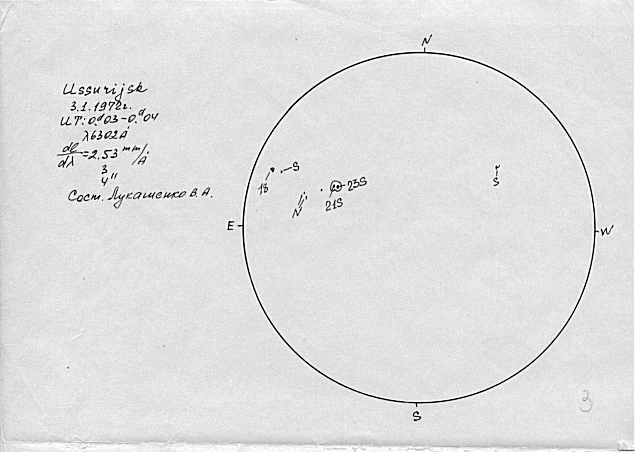 Ussurijsk
3.1.1972г.
UT: 0.ᵈ03-0.ᵈ04
λ6302Å
dl/dλ=2.53 mm/Å
3
4"
Сост. Лукашенко В.А.
N
S
18
S
23S
21S
N
S
E
W
S
3